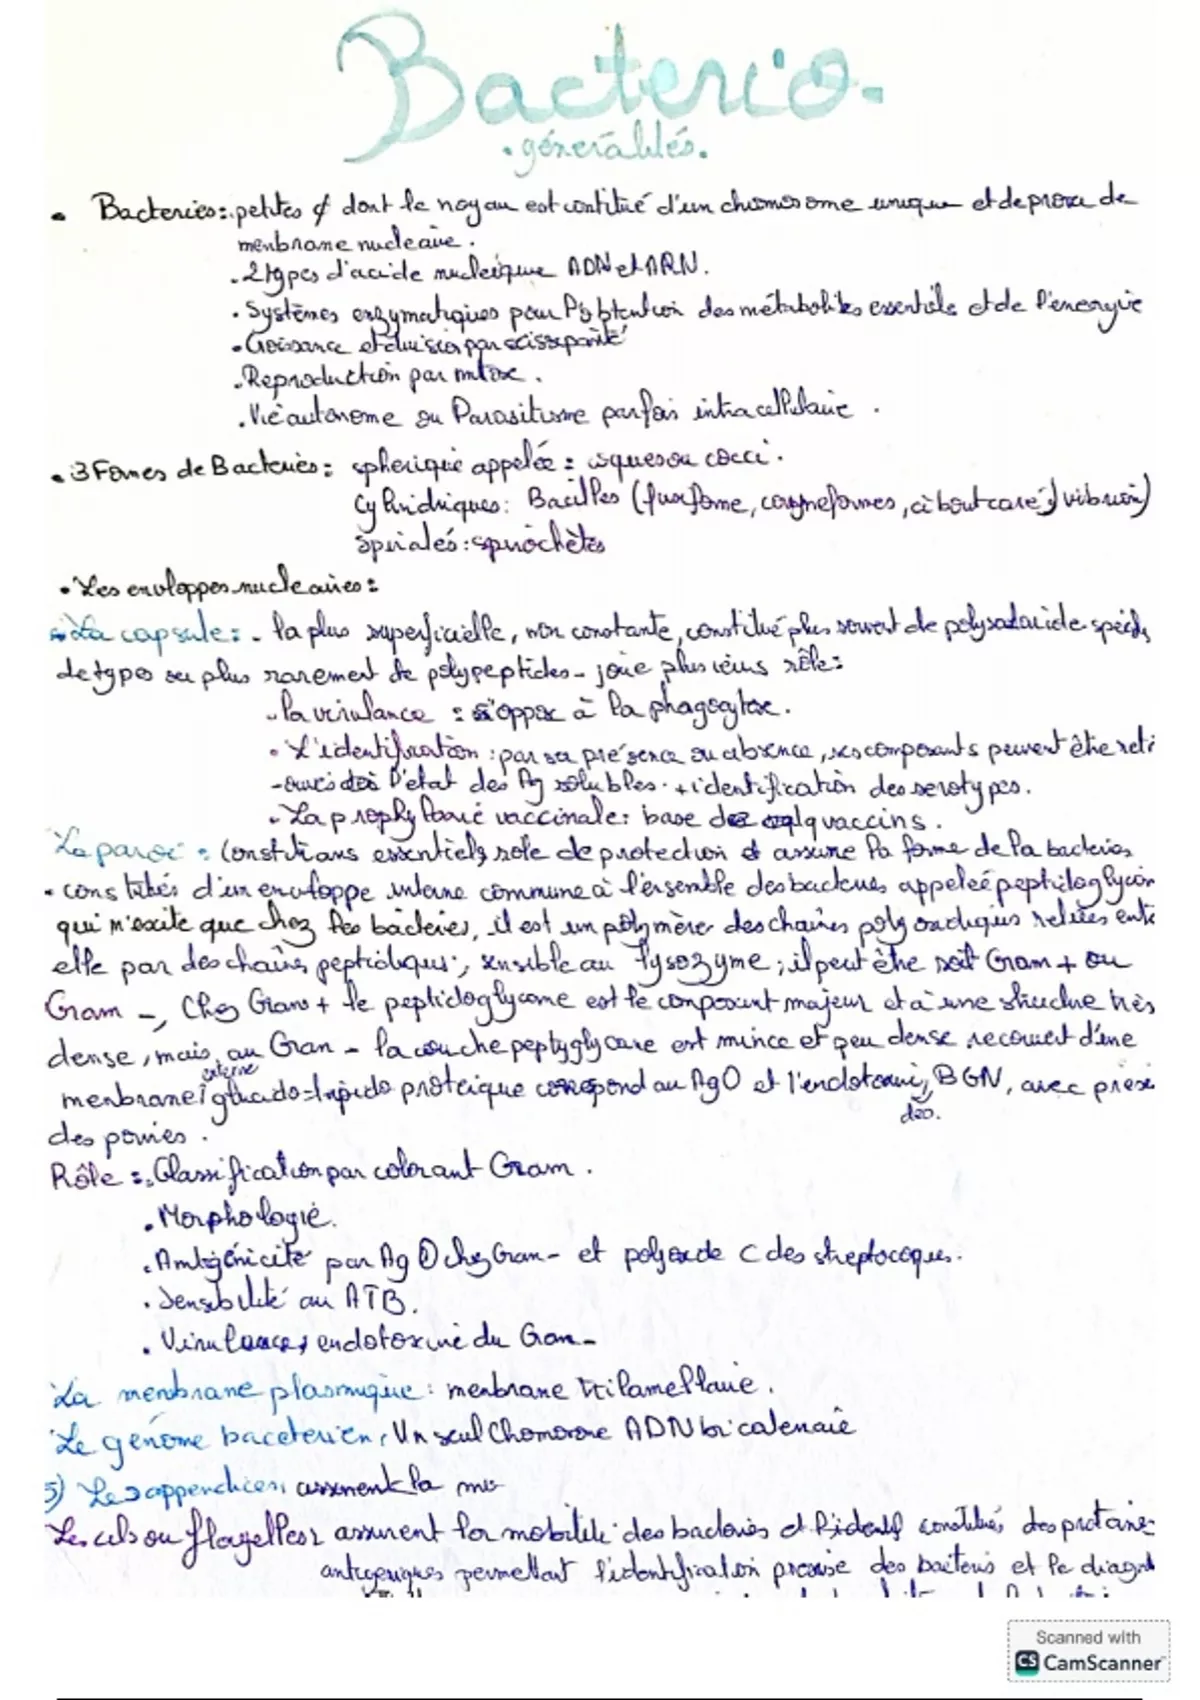 Bacterio.
. géneralités.
• Bacteries: petites ¢ dont le noyau est constitué d'un chromosome unique et deprovu de
menbrane nucleaire.
. 2 types d'acide nucleique ADN et ARN.
. Systèmes enzymatiques pour l'obtention des métabolites essentiels et de l'energie
. Croissance et division par scissiparité
. Reproduction par mitose.
. Vie autonome ou Parasitisme parfois intracellulaire.
• 3 Formes de Bacteries: spherique appelée: coques ou cocci.
Cylindriques: Bacilles (fusiforme, coryneformes, à bout carré, vibrion)
Spiralés: spirochètes
• Les enveloppes nucleaires:
La capsule: . la plus superficielle, non constante, constitué plus souvent de polysaccaride spécifi
de types ou plus rarement de polypeptides - joue plusieurs rôle:
. la virulance: s'oppose à la phagocytose.
. L'identification: par sa présence ou absence, ses composants peuvent être retr
-ouvés à l'état des Ag solubles. + identification des serotypes.
. La prophylaxie vaccinale: base de qlq vaccins.
La paroi: Constituans essentiels, role de protection et assure la forme de la bacteries
• constitués d'un enveloppe interne commune à l'ensemble des bacteries appeleé peptidoglycan
qui n'existe que chez les bacteries, il est un polymère des chaines polyosidiques reliées entre
elle par des chaines peptidiques, sensible au lysozyme; il peut être soit Gram + ou
Gram -, Chez Gram + le peptidoglycane est le composant majeur et a une structure très
dense, mais au Gram - la couche peptyglycane est mince et peu dense recouvert d'une
menbrane externe glucido-lipido proteique correspond au AgO et l'endotoxine BGN, avec prése
des porines.
Rôle: . Classification par colorant Gram.
. Morphologie.
. Antigénicité par Ag O chez Gram - et polyoside C des streptocoques.
. Sensibilité au ATB.
. Virulance, endotoxine du Gram -
La menbrane plasmique: menbrane trilamellaire.
Le génome baceterien, Un seul Chomosome ADN bicatenaire
5) Les appendices, assurent la mo
Les cils ou flagelles: assurent la mobilité des bacteries et l'identif constitués des protéine
antigeniques permettant l'identification precise des bacteries et le diagnost
Scanned with
CS CamScanner